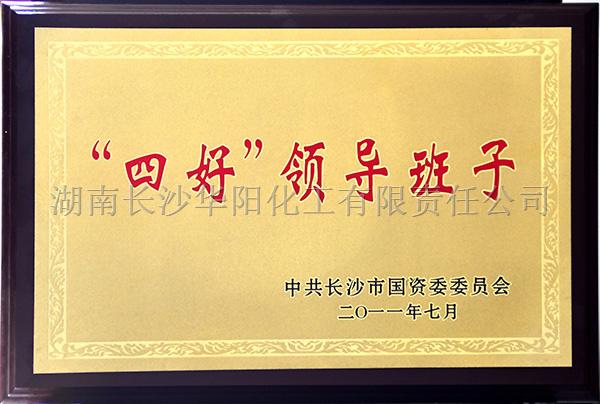 “四好”领导班子
湖南长沙华阳化工有限责任公司
中共长沙市国资委委员会
二〇一一年七月